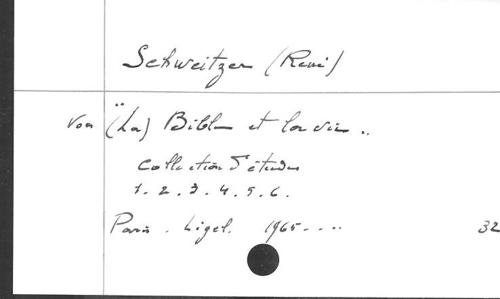 Schweitzer (René)
Voir "(La) Bible et la vie..
Collection d'études
1. 2. 3. 4. 5. 6.
Paris. Ligel. 1965....
32